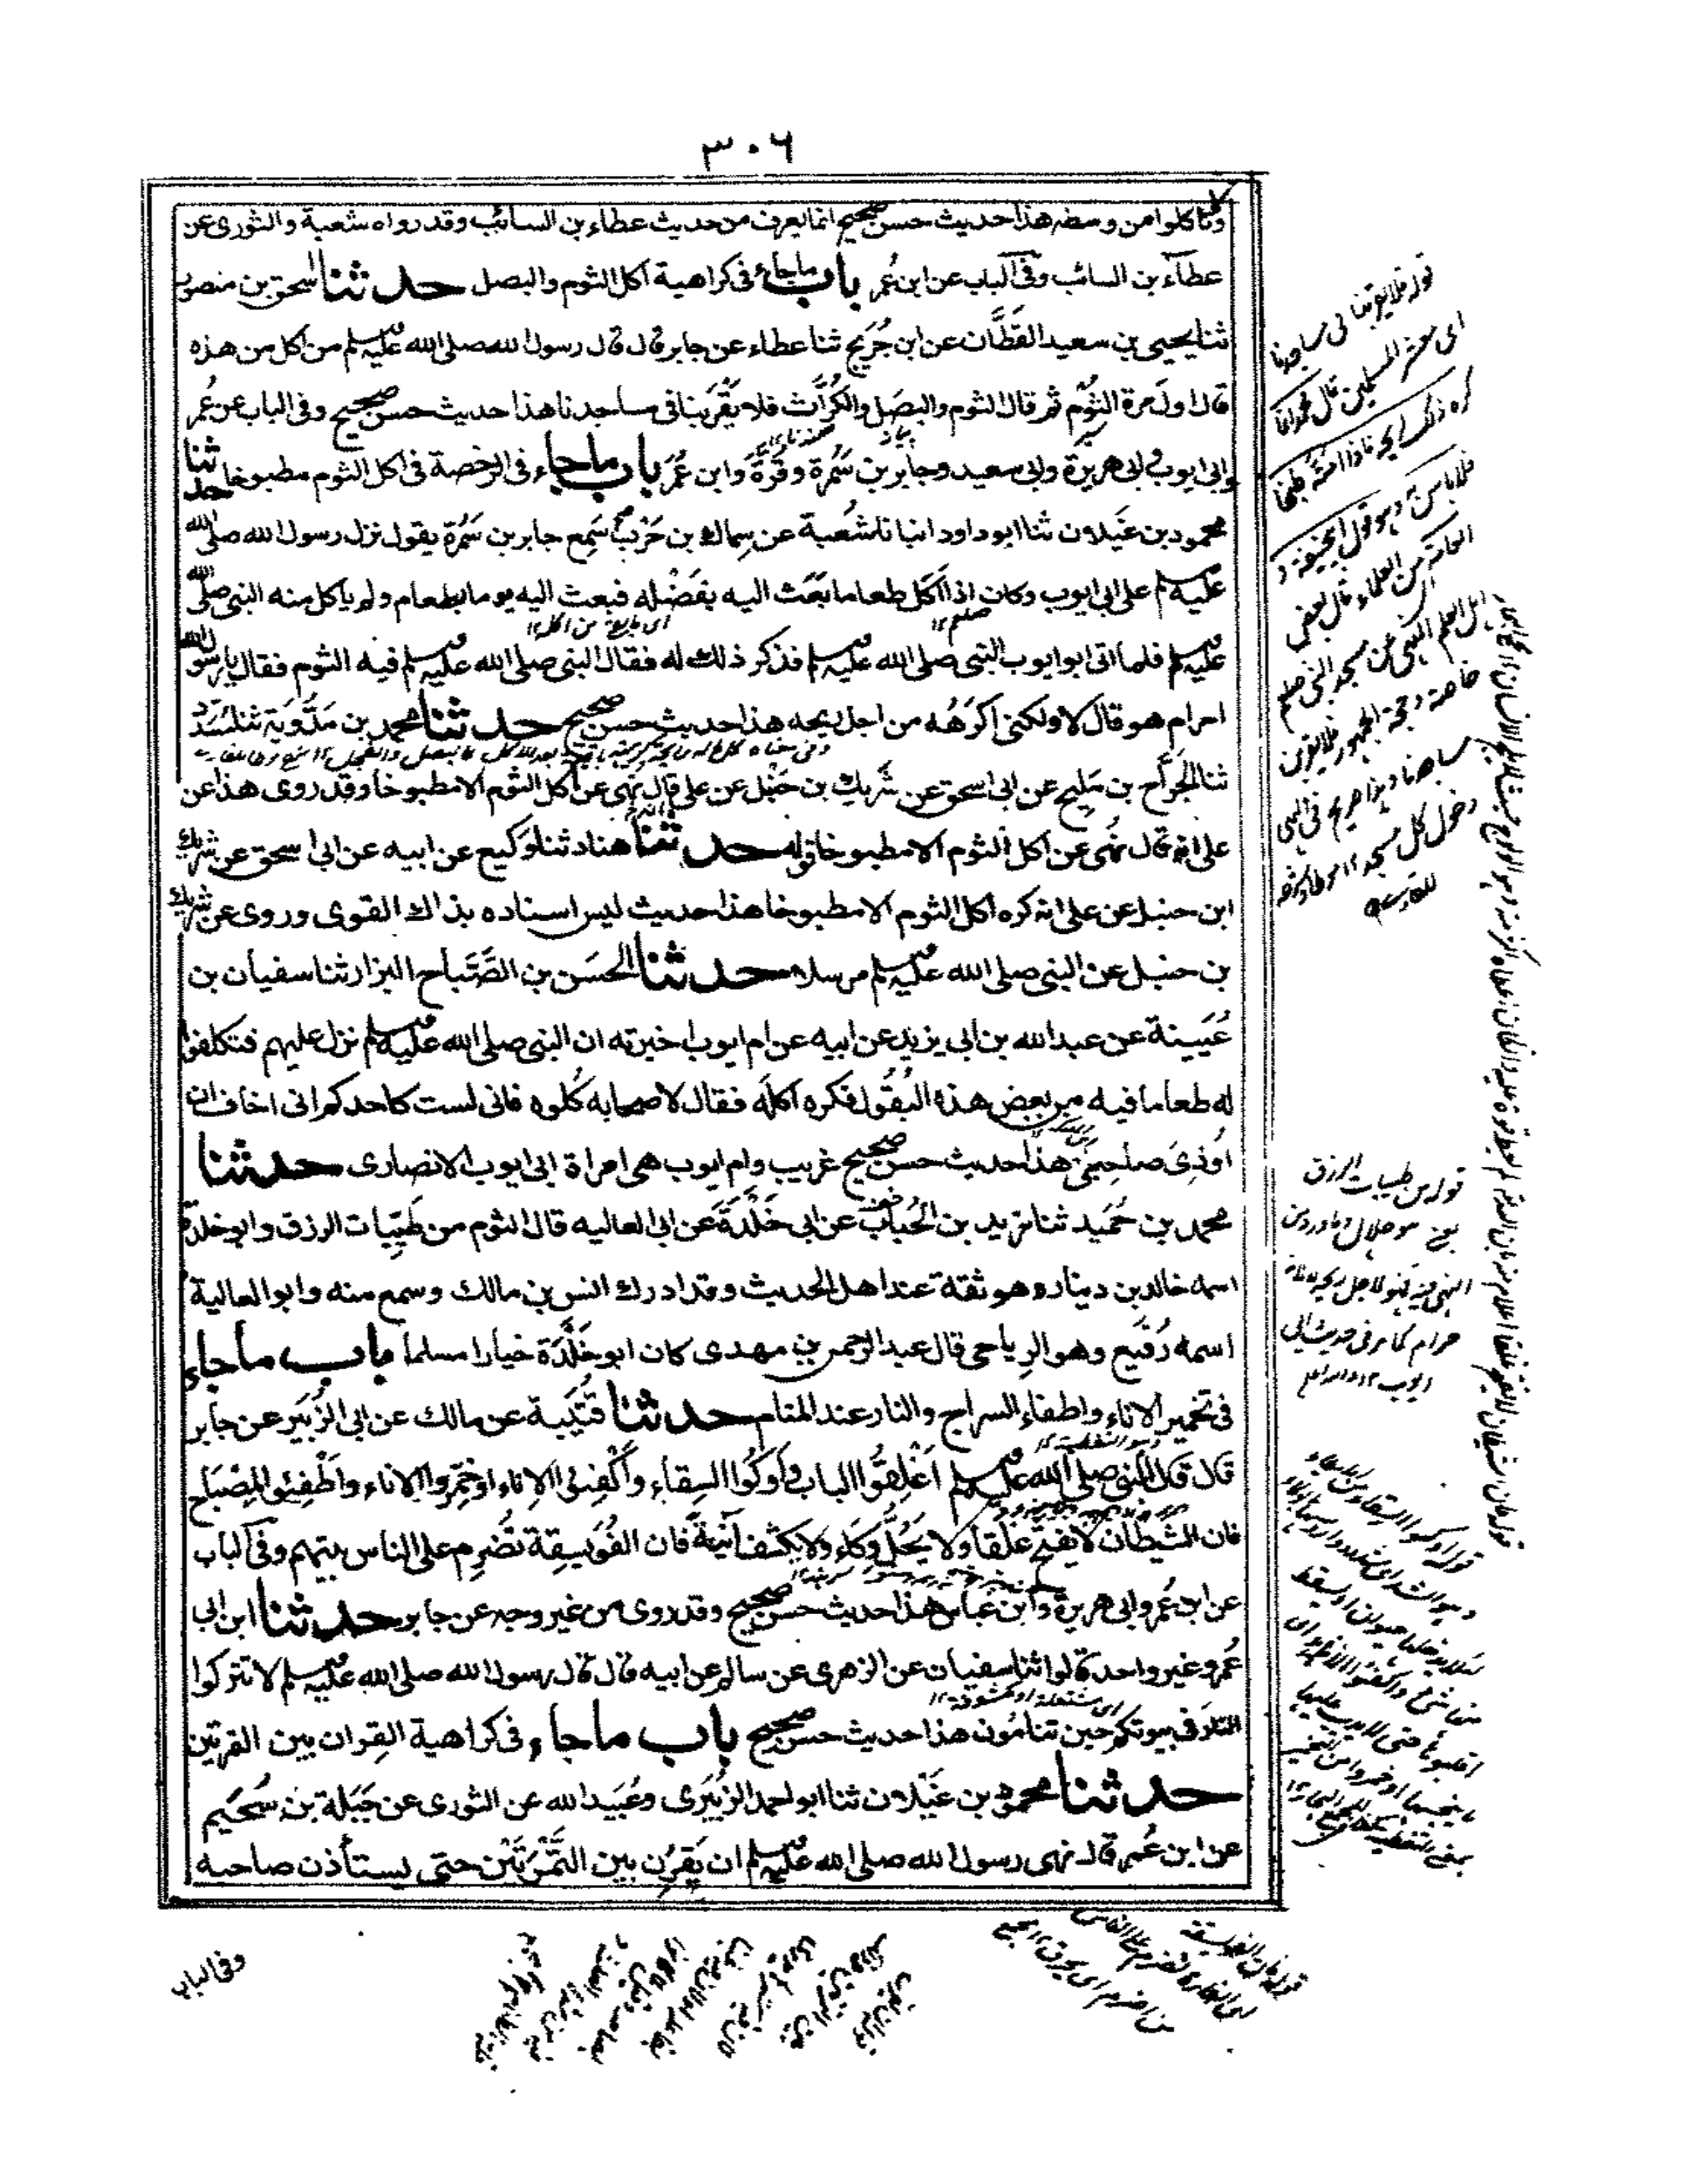 ٣٠٦
ولا تاكلوا من وسطه هذا حديث حسن صحيح انما يعرف من حديث عطاء بن السائب وقد رواه شعبة والثورى عن
عطاء بن السائب وفى الباب عن ابن عمر باب ما جاء فى كراهية اكل الثوم والبصل حدثنا اسحق بن منصور
ثنا يحيى بن سعيد القطَّان عن ابن جُرَيج ثنا عطاء عن جابر قال قال رسول الله صلى الله عليه وسلم من اكل من هذه
قال اول مرة الثُوْم ثم قال الثوم والبصَل والكُرَّاث فلا يَقْرَبنا فى مساجدنا هذا حديث حسن صحيح وفى الباب عن عُمر
وابى ايوب وابى هريرة وابى سعيد وجابر بن سَمُرة وقُرَّة وابن عُمَر باب ما جاء فى الرخصة فى اكل الثوم مطبوخا حدثنا
محمود بن غَيلان ثنا ابو داود انبانا شُعبة عن سِماك بن حَرْب سَمِع جابر بن سَمُرة يقول نزل رسول الله صلى الله
عليه وسلم على ابى ايوب وكان اذا اَكَل طعاما بَعَث اليه بفَضْله فبعث اليه يوما بطعام ولم ياكل منه النبى صلى الله
عليه وسلم فلما اتى ابو ايوب النبى صلى الله عليه وسلم فذكر ذلك له فقال النبى صلى الله عليه وسلم فيه الثوم فقال يا رسول الله
احرام هو قال لا ولكنى اكرَهُه من اجل ريحه هذا حديث حسن صحيح حدثنا محمد بن مَدُّوَيَة ثنا مُسَدَّد
ثنا الجَرَّاح بن مَليح عن ابى اسحق عن شَريك بن حَنْبل عن على قال نُهى عن اكل الثوم الا مطبوخا وقد روى هذا عن
على انه قال نُهى عن اكل الثوم الا مطبوخا قوله حدثنا هناد ثنا وكيع عن ابيه عن ابى اسحق عن شريك
ابن حنبل عن على انه كره اكل الثوم الا مطبوخا هذا حديث ليس اسناده بذاك القوى وروى عن شريك
بن حنبل عن النبى صلى الله عليه وسلم مرسلا حدثنا الحَسَن بن الصَّبَّاح البزار ثنا سفيان بن
عُيَينة عن عبد الله بن ابى يزيد عن ابيه عن ام ايوب اخبرته ان النبى صلى الله عليه وسلم نزل عليهم فتكلفوا
له طعاما فيه من بعض هذه البُقُول فكره اكلَه فقال لاصحابه كُلوه فانى لست كاحدكم انى اخاف ان
اُوْذِىَ صاحبى هذا حديث حسن صحيح غريب وام ايوب هى امراة ابى ايوب الانصارى حدثنا
محمد بن حُمَيد ثنا زيد بن الحُبَاب عن ابى خَلْدَةَ عن ابى العاليه قال الثوم من طَيِّبات الرزق وابو خلدة
اسمه خالد بن دينار وهو ثقة عند اهل الحديث وقد ادرك انس بن مالك وسمع منه وابو العالية
اسمه رُفَيع وهو الرِياحى قال عبد الرحمن بن مهدى كان ابو خَلْدَة خيارا مسلما باب ما جاء
فى تخمير الاناء واطفاء السراج والنار عند المنام حدثنا قُتَيبة عن مالك عن ابى الزُبَير عن جابر
قال قال النبى صلى الله عليه وسلم اَغْلِقوُّا الباب واَوكُوا السِقاء واَكْفِئُوا الاِناء او خَمِّروا الاناء واَطْفِئوا المِصْبَاح
فان الشيطان لا يفتح غَلَقا ولا يَحُلُّ وِكَاءً ولا يكشف اٰنيةً فان الفُوَيسِقة تُضرِم على الناس بيتهم وفى الباب
عن ابن عُمر وابى هريرة وابن عباس هذا حديث حسن صحيح وقد روى من غير وجه عن جابر حدثنا ابن ابى
عُمر وغير واحد قالوا ثنا سفيان عن الزهرى عن سالم عن ابيه قال قال رسول الله صلى الله عليه وسلم لا تتركوا
النار فى بيوتكم حين تنامُون هذا حديث حسن صحيح باب ما جاء فى كراهية القِران بين التمرتين
حدثنا محمود بن غَيْلان ثنا ابو احمد الزُبَيرى وعُبَيد الله عن الثورى عن جَبَلة بن سُحَيم
عن ابن عُمر قال نهى رسول الله صلى الله عليه وسلم ان يَقرِن بين التَّمْرَتَيْن حتى يستأذن صاحبه
وفى الباب
قوله فلا يقربنا فى مساجدنا
اى معشر المسلمين قال محمد انما
كره ذلك لريحه فاذا امته طبخا
فلا باس به وهو قول ابى حنيفة و
العامة من العلماء قال بعض
اهل العلم النهى عن مسجد النبى صلعم
خاصة وحجة الجمهور فلا يقربن
مساجدنا وهذا صريح فى النهى
دخول كل مسجد
قوله من طيبات الرزق
يعنى هو حلال وما ورد من
النهى فيه فهو لاجل ريحه لا انه
حرام كما مر فى حديث ابى
ايوب